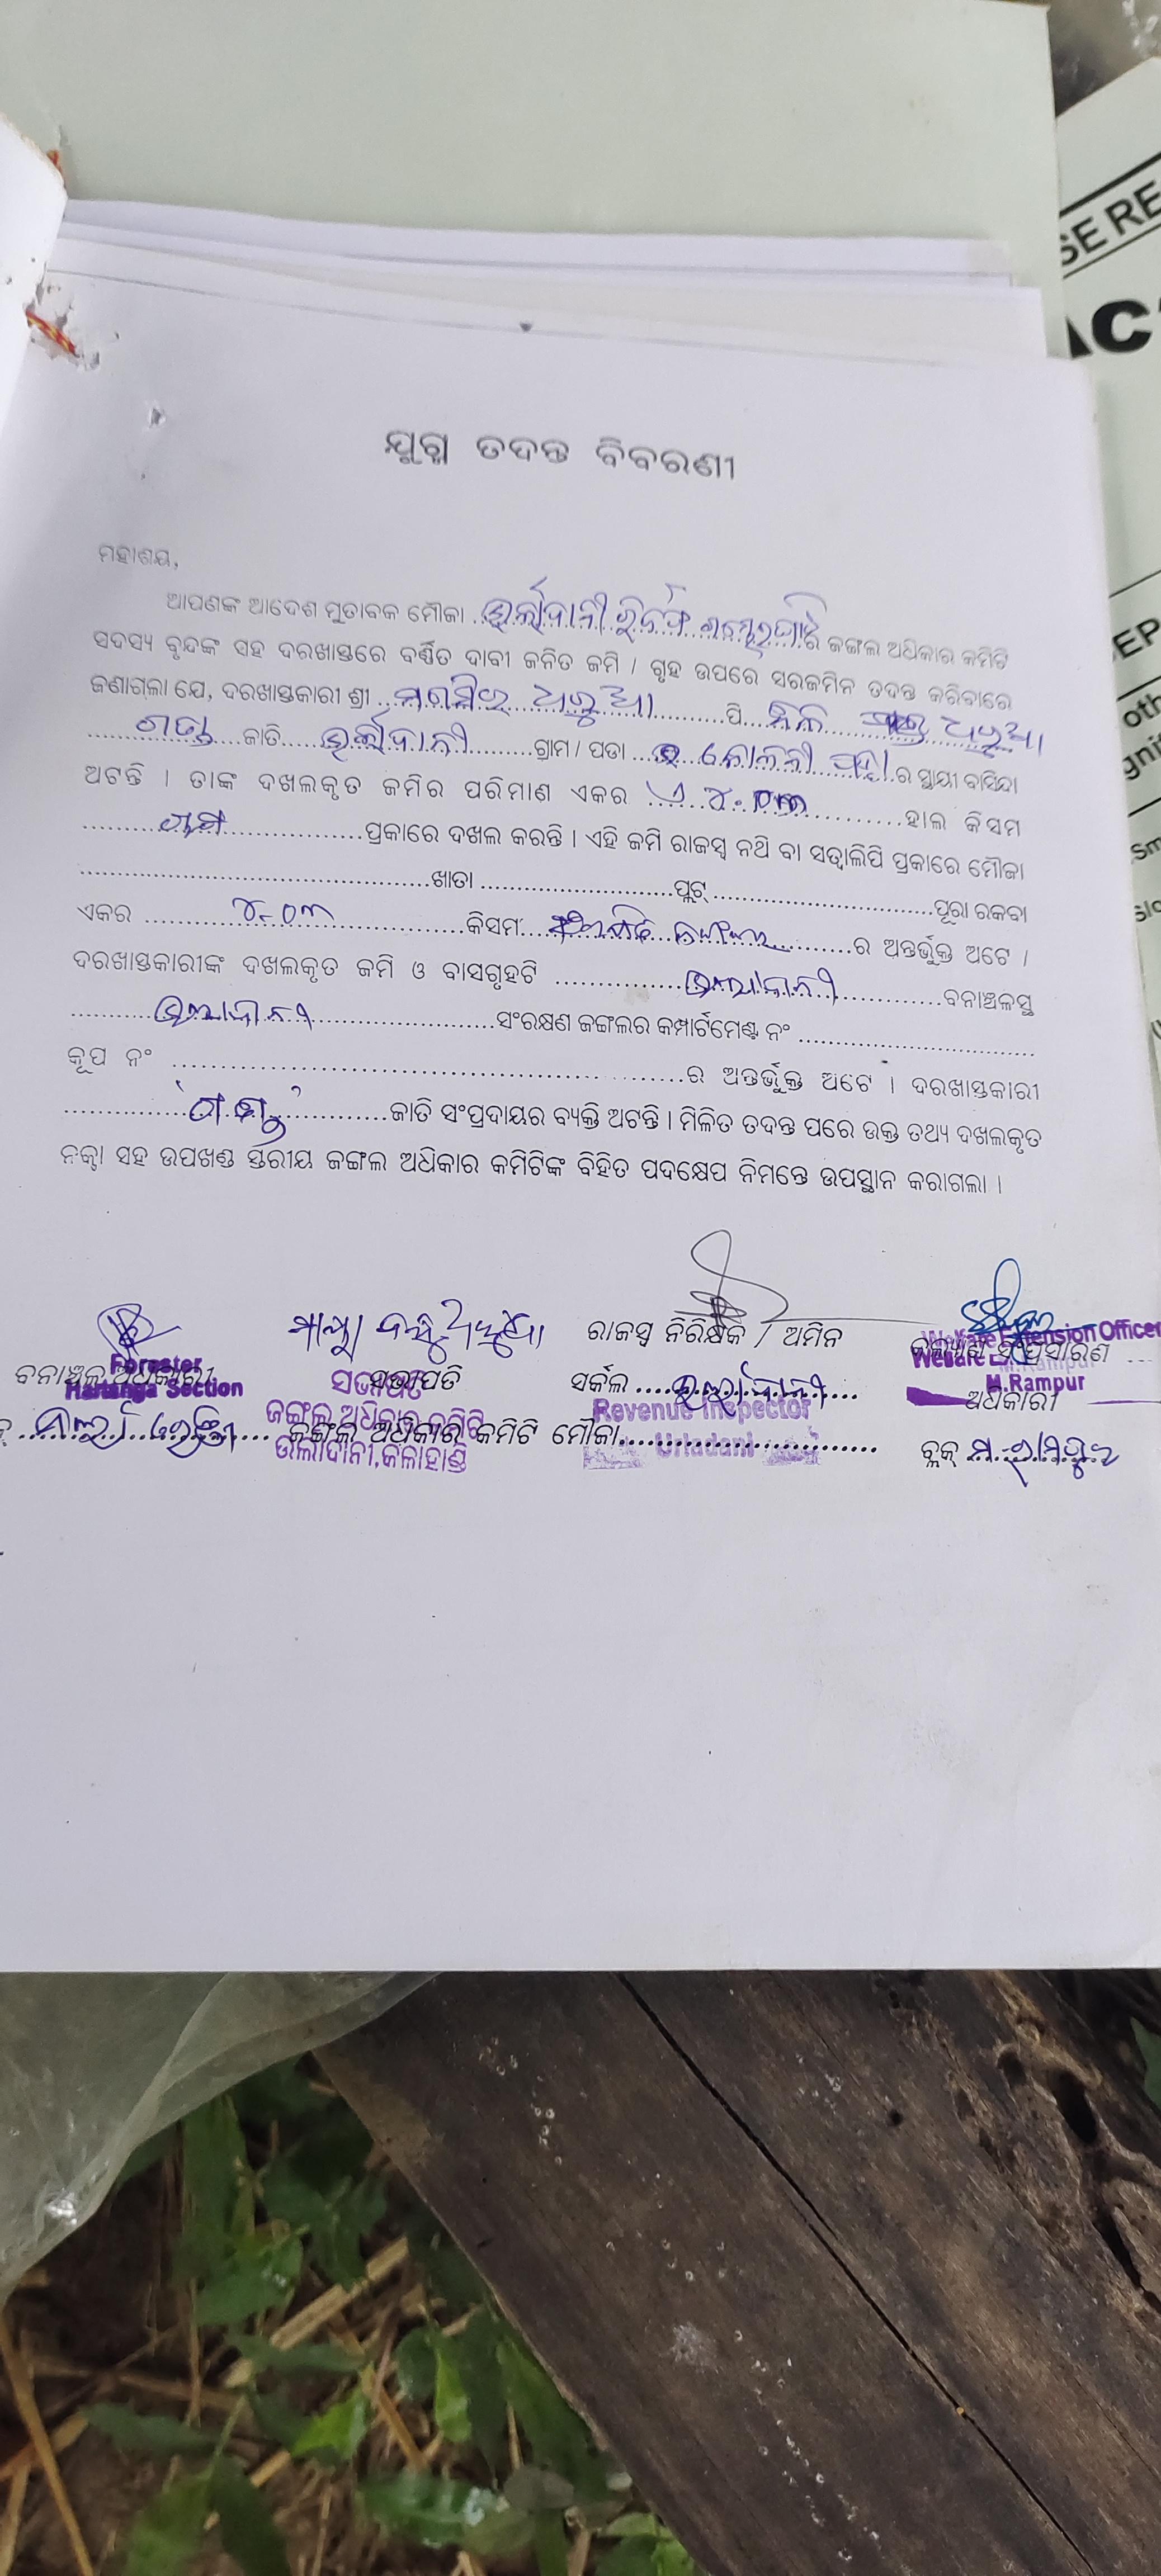 SE RE
AC
EP
oth
gni
Sm
ଯୁଗ୍ମ ତଦନ୍ତ ବିବରଣୀ
ମହାଶୟ,
ଆପଣଙ୍କ ଆଦେଶ ମୁତାବକ ମୌଜା ଉର୍ଲାଦାନୀ ର ଜଙ୍ଗଲ ଅଧିକାର କମିଟି
ସଦସ୍ୟ ବୃନ୍ଦଙ୍କ ସହ ଦରଖାସ୍ତରେ ବର୍ଣ୍ଣିତ ଦାବୀ ଜନିତ ଜମି / ଗୃହ ଉପରେ ସରଜମିନ ତଦନ୍ତ କରିବାରେ
ଜଣାଗଲା ଯେ, ଦରଖାସ୍ତକାରୀ ଶ୍ରୀ ପି
ଜାତି ଉର୍ଲାଦାନୀ ଗ୍ରାମ / ପଡା ର ସ୍ଥାୟୀ ବାସିନ୍ଦା
ଅଟନ୍ତି । ତାଙ୍କ ଦଖଲକୃତ ଜମିର ପରିମାଣ ଏକର ହାଲ କିସମ
ପ୍ରକାରେ ଦଖଲ କରନ୍ତି । ଏହି ଜମି ରାଜସ୍ଵ ନଥି ବା ସତ୍ଵାଲିପି ପ୍ରକାରେ ମୌଜା
ଖାତା ପ୍ଲଟ୍ ପୂରା ରକବା
ଏକର ୪.୦୩ କିସମ ଜଙ୍ଗଲ ର ଅନ୍ତର୍ଭୁକ୍ତ ଅଟେ ।
ଦରଖାସ୍ତକାରୀଙ୍କ ଦଖଲକୃତ ଜମି ଓ ବାସଗୃହଟି ଉର୍ଲାଦାନୀ ବନାଞ୍ଚଳସ୍ଥ
ଉର୍ଲାଦାନୀ ସଂରକ୍ଷଣ ଜଙ୍ଗଲର କମ୍ପାର୍ଟମେଣ୍ଟ ନଂ
କୂପ ନଂ ର ଅନ୍ତର୍ଭୁକ୍ତ ଅଟେ । ଦରଖାସ୍ତକାରୀ
ଜାତି ସଂପ୍ରଦାୟର ବ୍ୟକ୍ତି ଅଟନ୍ତି । ମିଳିତ ତଦନ୍ତ ପରେ ଉକ୍ତ ତଥ୍ୟ ଦଖଲକୃତ
ନକ୍ସା ସହ ଉପଖଣ୍ଡ ସ୍ତରୀୟ ଜଙ୍ଗଲ ଅଧିକାର କମିଟିଙ୍କ ବିହିତ ପଦକ୍ଷେପ ନିମନ୍ତେ ଉପସ୍ଥାନ କରାଗଲା ।
ରାଜସ୍ଵ ନିରିକ୍ଷକ / ଅମିନ
Welfare Extension Officer
କଲ୍ୟାଣ ସଂପ୍ରସାରଣ
Forester
ବନାଞ୍ଚଳ ଅଧିକାରୀ
ସଭାପତି
ସର୍କଲ ଉର୍ଲାଦାନୀ
M.Rampur
ଅଧିକାରୀ
Section
ସଭାପତି
ଜଙ୍ଗଲ ଅଧିକାର କମିଟି
Revenue Inspector
Urladani
ଜଙ୍ଗଲ ଅଧିକାର କମିଟି ମୌଜା
ଉର୍ଲାଦାନୀ,କଳାହାଣ୍ଡି
ବ୍ଲକ୍ ମ.ରାମପୁର